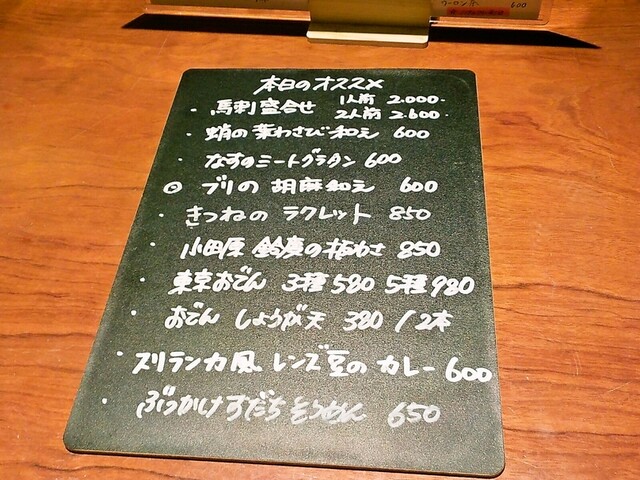 ウーロン茶 600
本日のオススメ
・馬刺盛合せ 1人前 2.000-
2人前 2.600-
・蛸の葉わさび和え 600
・なすのミートグラタン 600
◎ ブリの胡麻和え 600
・きつねの ラクレット 850
・小田原 鈴廣の板わさ 850
・東京おでん 3種580 5種980
・おでん しょうが天 380/2本
・スリランカ風 レンズ豆の カレー 600
・ぶっかけすだちそうめん 650